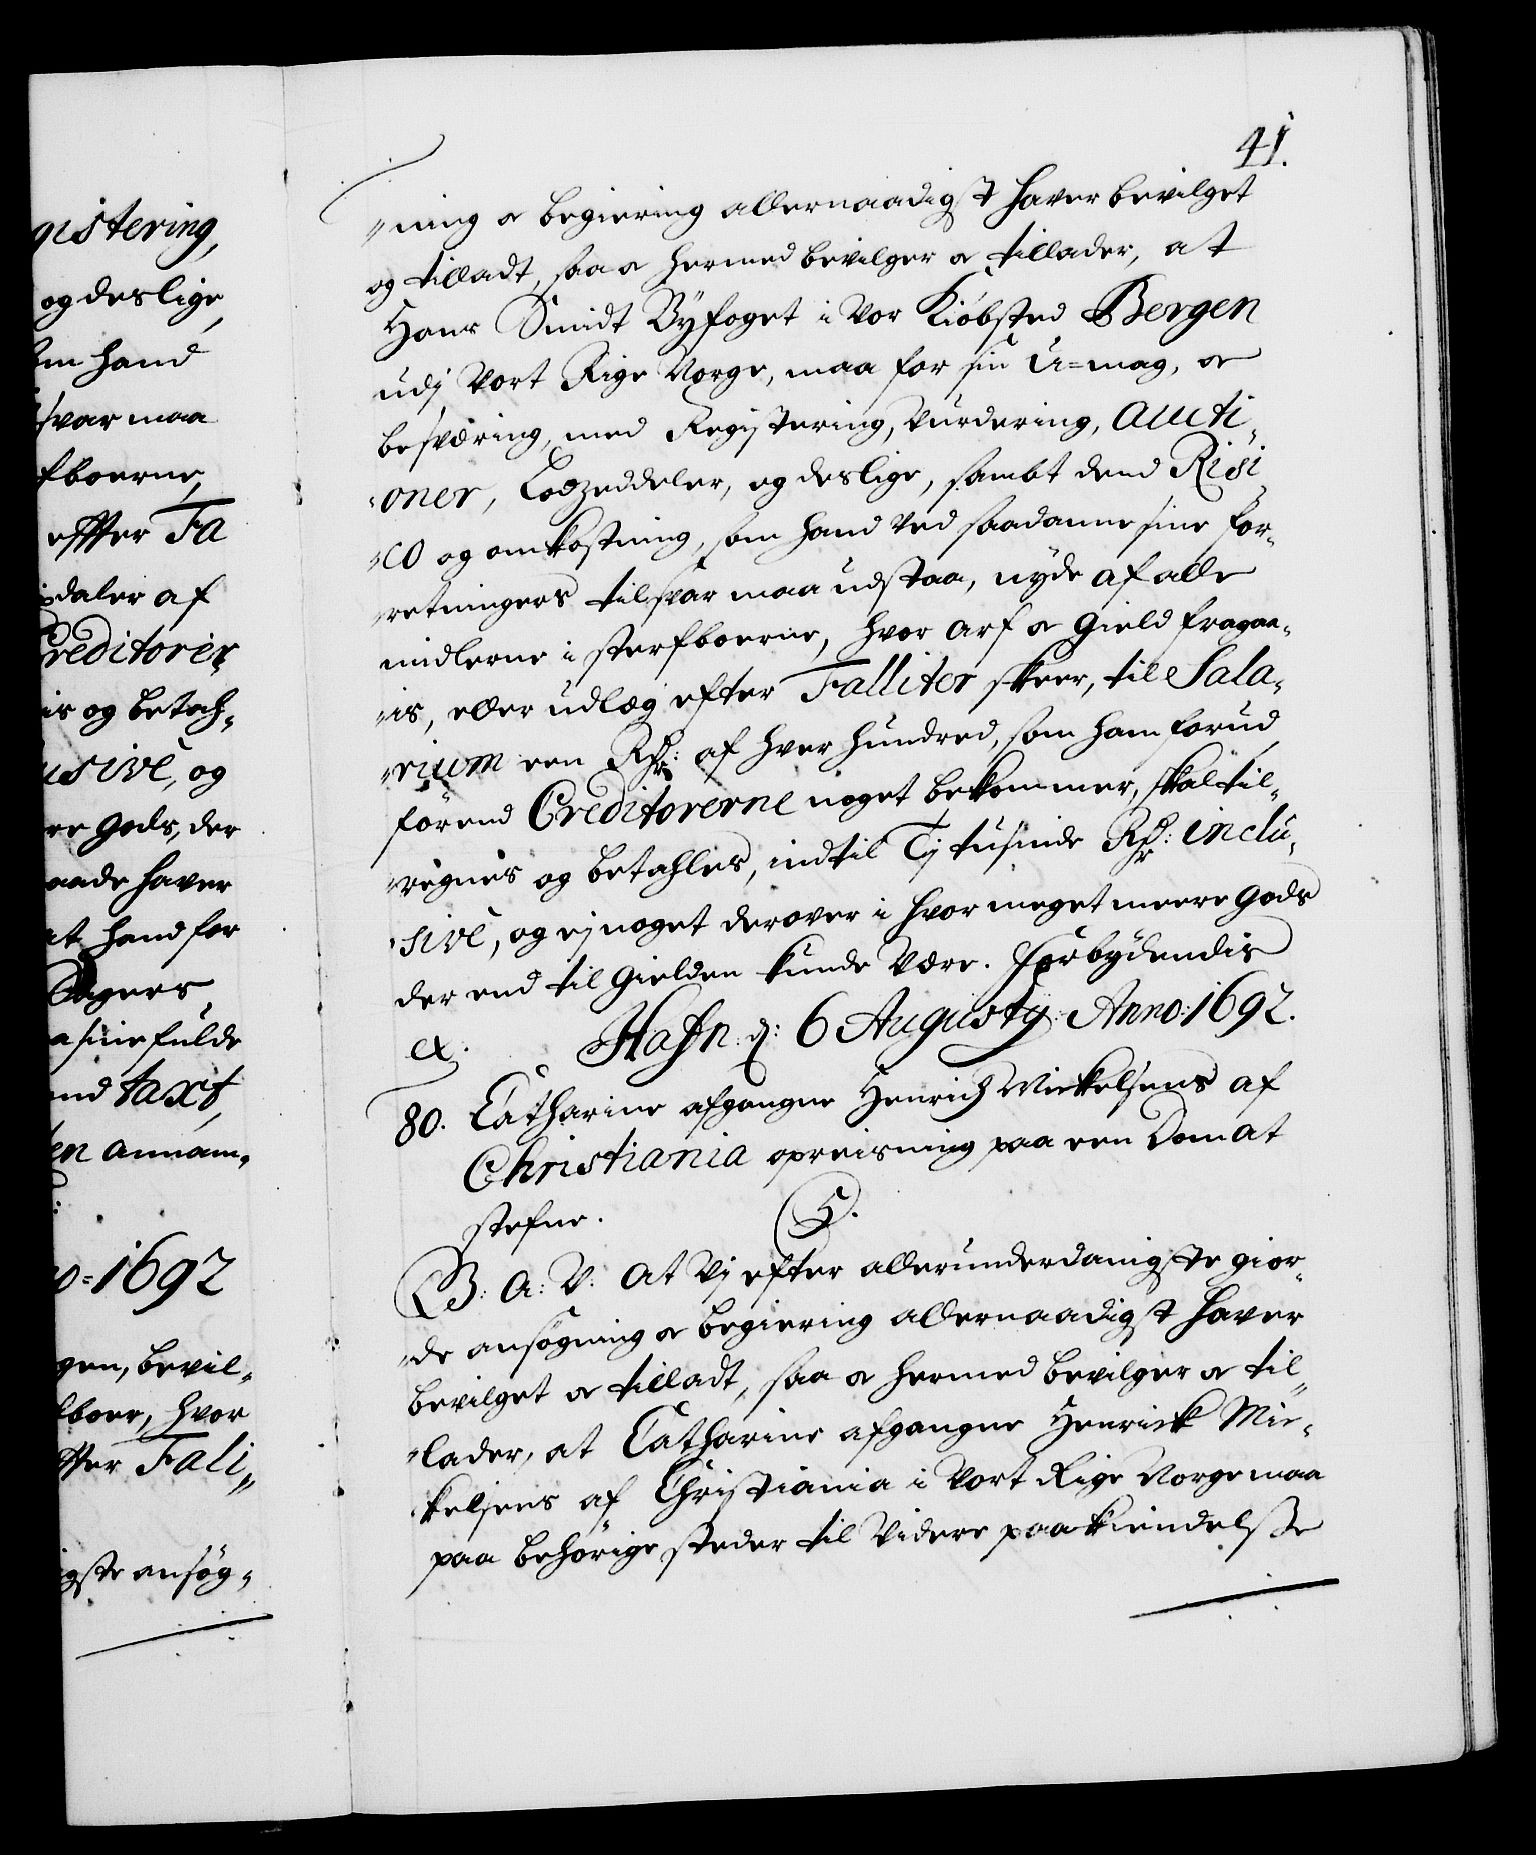 gistering,
og deslige,
som hand
svar maa
fboerne,
effter Fa
daler af
Creditorer
is og betah¬
usive, og
re gods, der
aade haver
at hand for
Sagners
a sine fulde
nd taxt,
en annam¬
o=1692
gen, bevil¬
fboer, hvor
ffter Fali¬
igste ansøg¬
41.
¬ning & begiering allernaadigst haver bevilget
og tilladt, saa & hermed bevilger & tillader, at
Hans Smidt Byfoget i vor Kiøbsted Bergen
udj vort Rige Norge, maa for sin U=mag, &
besværing, med Registering, vurdering, Aucti¬
¬oner, Lodzeddeler, og deslige, sambt dend Risi¬
¬co og omkostning, som hand ved saadanne sine for¬
¬retningers tilsvar maa udstaa, nyde af alle
midlerne i sterfboerne, hvor arf & gield fragaa¬
¬is, eller udlæg efter Falliter skeer, til Sala¬
¬rium een Rdr: af hver hundred, som ham forud
førend Creditorerne noget bekommer, skal til¬
¬regnes og betahles, indtil Tj tusinde Rdr: inclu¬
¬sive, og ej noget derover i hvor meget meere gods
der end til gielden kunde være. Forbydendis
&. Hafn: d: 6 Augustij Anno: 1692.
80. Catharine afgangne Henrich Mickelsens af
Christiania opreisning paa een Dom at
stefne. 5.
G: A: V: At Vj efter allerunderdanigste gior¬
¬de ansøgning & begiering allernaadigst haver
bevilget & tilladt, saa & hermed bevilger & til¬
¬lader, at Catharine afgangne Henrick Mic¬
¬kelsens af Christiania i vort Rige Norge maa
paa behørige steder til videre paakiendelsse